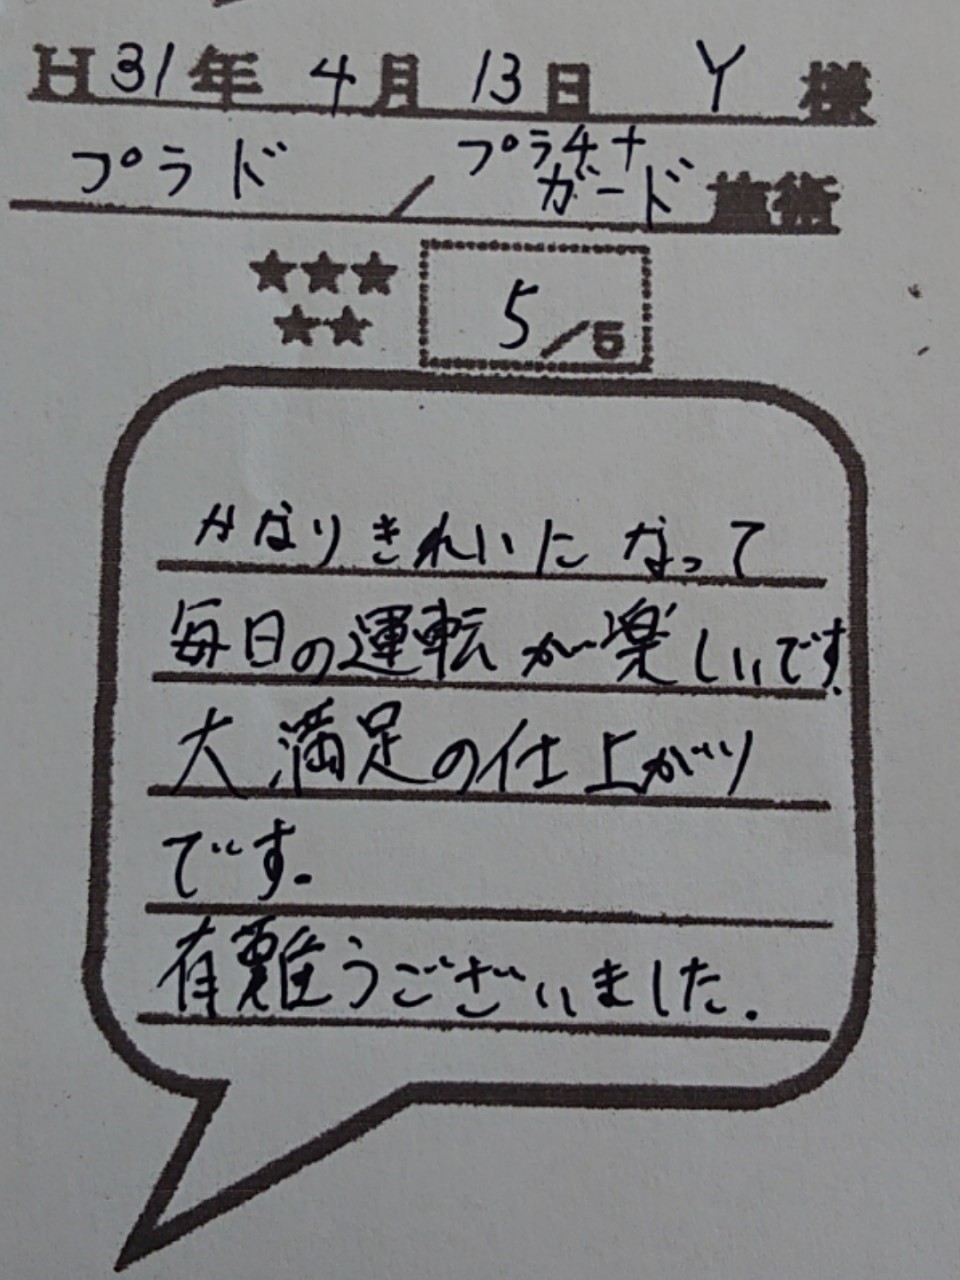 H31年 4月 13日 Y 様
プラド / プラチナガード 施術
★★★
★★
5/5
かなりきれいになって
毎日の運転が楽しいです。
大満足の仕上がり
です。
有難うございました.